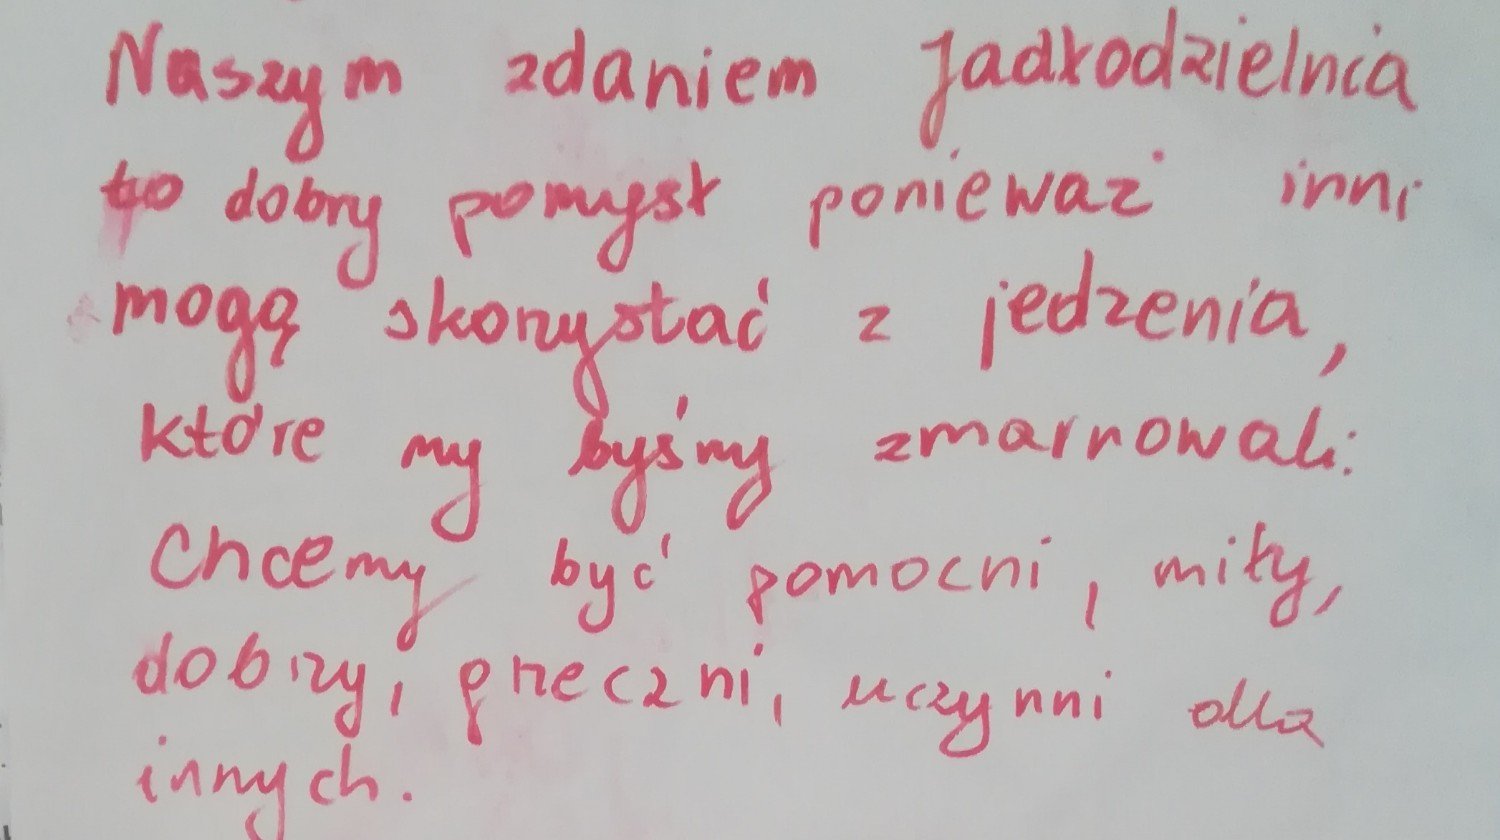 Naszym zdaniem Jadłodzielnia
to dobry pomysł ponieważ inni
mogą skorzystać z jedzenia,
które my byśmy zmarnowali.
Chcemy być pomocni, miły,
dobrzy, grzeczni, uczynni dla
innych.